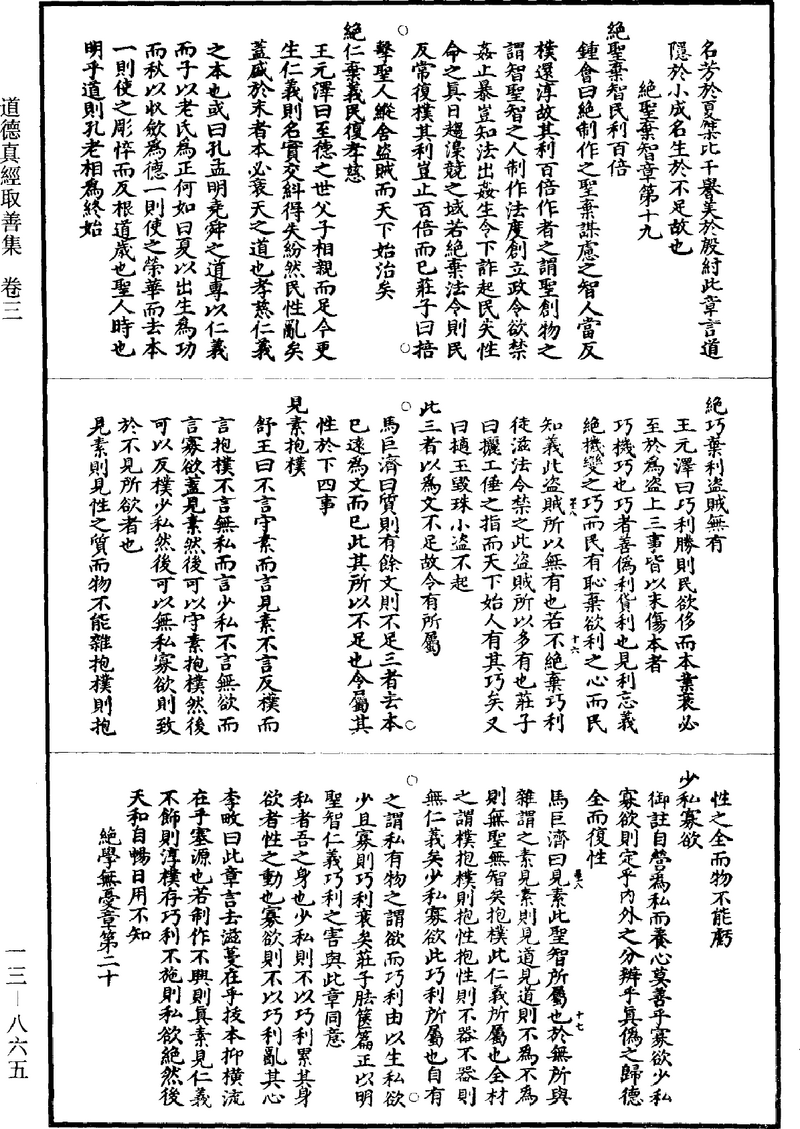 名芳於夏桀比干譽美於殷紂此章言道
隱於小成名生於不足故也
絕聖棄智章第十九
絕聖棄智民利百倍
鍾會曰絕制作之聖棄謀慮之智人當反
樸還淳故其利百倍作者之謂聖創物之
謂智聖智之人制作法度創立政令欲禁
姦止暴豈知法出姦生令下詐起民失性
命之真日趨澆競之域若絕棄法令則民
反常復樸其利豈止百倍而已莊子曰掊
擊聖人縱舍盜賊而天下始治矣
絕仁棄義民復孝慈
王元澤曰至德之世父子相親而足今更
生仁義則名實交糾得失紛然民性亂矣
蓋盛於末者本必衰天之道也孝慈仁義
之本也或曰孔孟明堯舜之道專以仁義
而子以老氏為正何如曰夏以出生為功
而秋以收斂為德一則使之榮華而去本
一則使之彫悴而反根道歲也聖人時也
明乎道則孔老相為終始
絕巧棄利盜賊無有
王元澤曰巧利勝則民欲侈而本業衰必
至於為盜上三事皆以末傷本者
巧機巧也巧者善偽利貨利也見利忘義
絕機變之巧而民有恥棄欲利之心而民
知義此盜賊所以無有也若不絕棄巧利
徒滋法令禁之此盜賊所以多有也莊子
曰攦工倕之指而天下始人有其巧矣又
曰擿玉毀珠小盜不起
此三者以為文不足故令有所屬
馬巨濟曰質則有餘文則不足三者去本
已遠為文而已此其所以不足也令屬其
性於下四事
見素抱樸
舒王曰不言守素而言見素不言反樸而
言抱樸不言無私而言少私不言無欲而
言寡欲蓋見素然後可以守素抱樸然後
可以反樸少私然後可以無私寡欲則致
於不見所欲者也
見素則見性之質而物不能雜抱樸則抱
十六
性之全而物不能虧
少私寡欲
御註自營為私而養心莫善乎寡欲少私
寡欲則定乎內外之分辨乎真偽之歸德
全而復性
馬巨濟曰見素此聖智所屬也於無所與
雜謂之素見素則見道見道則不為不為
則無聖無智矣抱樸此仁義所屬也全材
之謂樸抱樸則抱性抱性則不器不器則
無仁義矣少私寡欲此巧利所屬也自有
之謂私有物之謂欲而巧利由以生私欲
少且寡則巧利衰矣莊子胠篋篇正以明
聖智仁義巧利之害與此章同意
私者吾之身也少私則不以巧利累其身
欲者性之動也寡欲則不以巧利亂其心
李畋曰此章言去滋蔓在乎拔本抑橫流
在乎塞源也若制作不興則真素見仁義
不飾則淳樸存巧利不施則私欲絕然後
天和自暢日用不知
絕學無憂章第二十
十七
道德真經取善集 卷三
一三—八六五